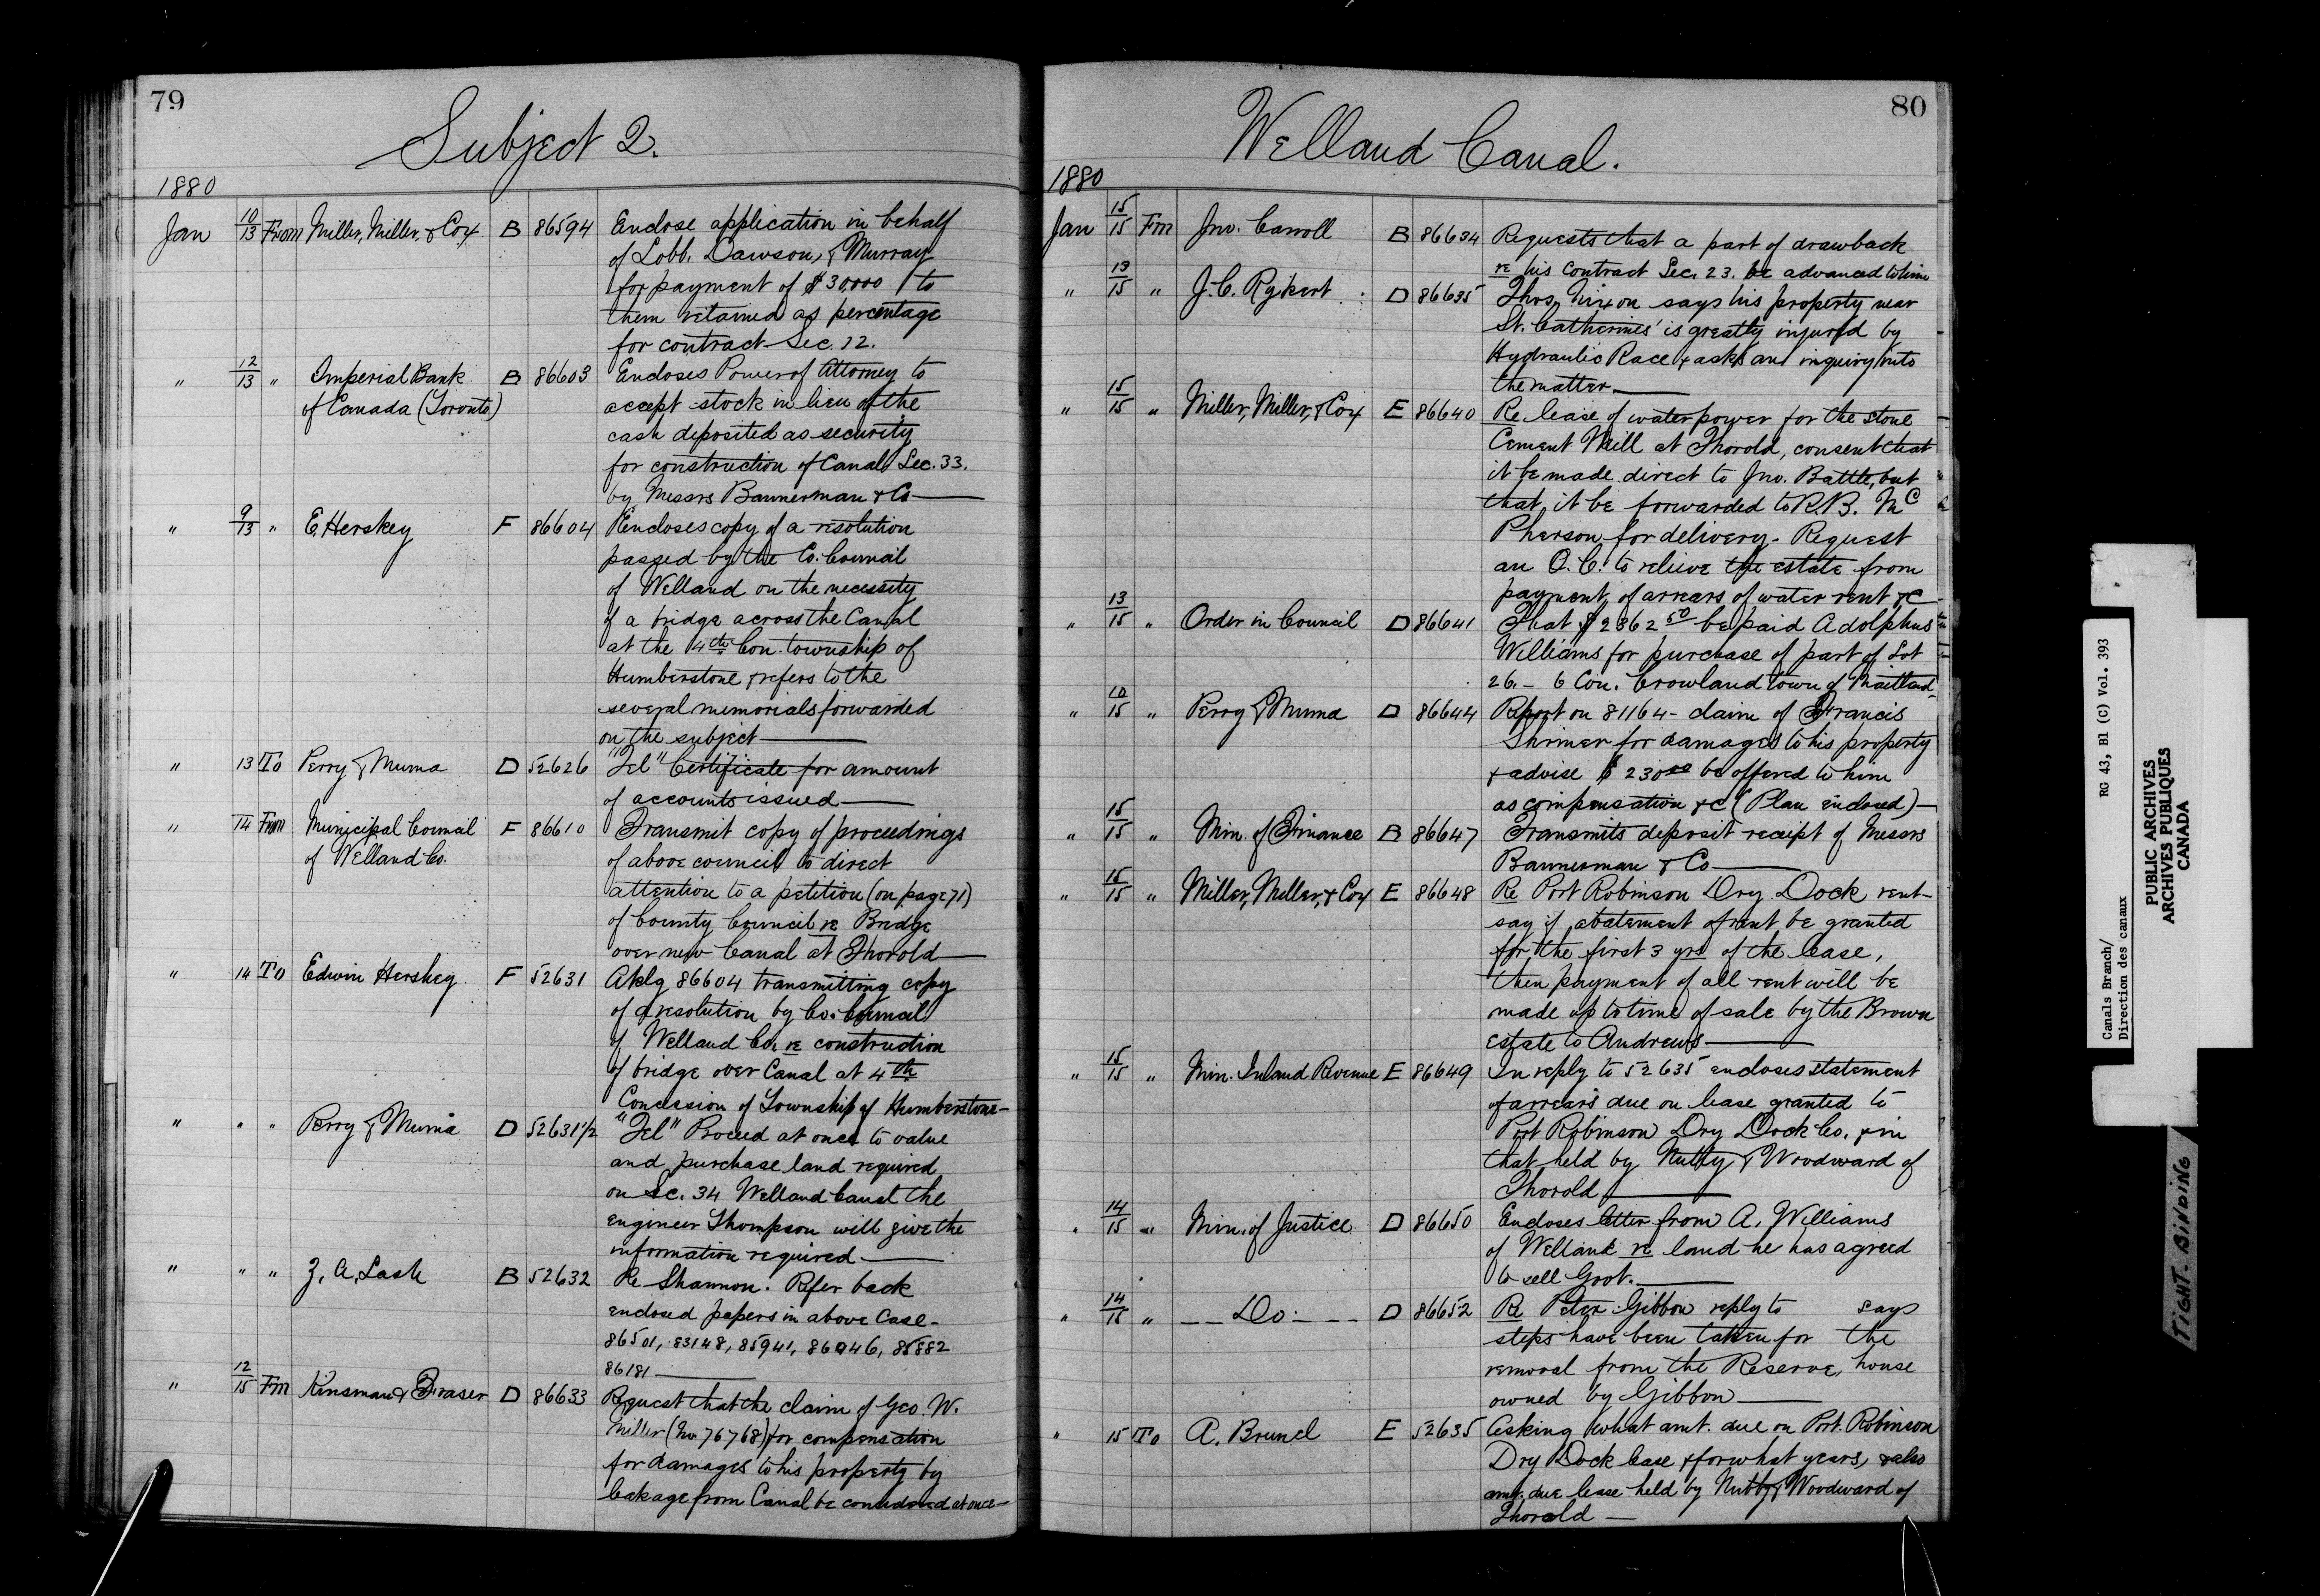 79
Subject 2.
1880
Jan 10/13 From Miller, Miller, & Cox B 86594 Enclose application in behalf
of Lobb, Dawson, & Murray
for payment of $30,000 to
them retained as percentage
for contract Sec. 12.
" 12/13 " Imperial Bank B 86603 Encloses Power of Attorney to
of Canada (Toronto) accept stock in lieu of the
cash deposited as security
for construction of Canal, Sec. 33.
by Messrs Bannerman & Co
" 9/13 " E. Herskey F 86604 Encloses copy of a resolution
passed by the Co. Council
of Welland on the necessity
of a bridge across the Canal
at the 4th Con. township of
Humberstone & refers to the
several memorials forwarded
on the subject
" 13 To Perry & Muma D 52626 "Tel" Certificate for amount
of accounts issued
" 14 From Municipal Council F 86610 Transmit copy of proceedings
of Welland Co. of above council to direct
attention to a petition (on page 71)
of County Council re Bridge
over new Canal at Thorold
" 14 To Edwin Hershey F 52631 Aklg 86604 transmitting copy
of a resolution by Co. Council
of Welland Co. re construction
of bridge over Canal at 4th
Concession of Township of Humberstone
" " " Perry & Muma D 52631 1/2 "Tel" Proceed at once to value
and purchase land required
on Sec. 34 Welland Canal the
engineer Thompson will give the
information required
" " " Z. A. Lash B 52632 Re Shannon. Refer back
enclosed papers in above Case -
86501, 83148, 85941, 86046, 85882
86181
" 12/15 Fm Kinsman & Fraser D 86633 Request that the claim of Geo. W.
Miller (No 76768) for compensation
for damages to his property by
leakage from Canal be considered at once
80
Welland Canal.
1880
Jan 15/15 Fm Jno. Carroll B 86634 Requests that a part of drawback
re his contract Sec. 23. be advanced to him
" 13/15 " J. C. Rykert D 86635 Thos. Nixon says his property near
St. Catherines' is greatly injured by
Hydraulic Race & asks an inquiry into
the matter
" 15/15 " Miller, Miller, & Cox E 86640 Re lease of water power for the Stone
Cement Mill at Thorold, consent that
it be made direct to Jno. Battle, but
that it be forwarded to R.B. Mc
Pherson for delivery. Request
an O.C. to relieve the estate from
payment, of arrears of water rent &c
" 13/15 " Order in Council D 86641 That $2862 50 be paid Adolphus
Williams for purchase of part of Lot
26. - 6 Con. Crowland town of Maitland
" 10/15 " Perry & Muma D 86644 Report on 81164 - claim of Francis
Shriner for damages to his property
& advise $230 00 be offered to him
as compensation &c (Plan enclosed)
" 15/15 " Min. of Finance B 86647 Transmits deposit receipt of Messrs
Bannerman & Co
" 15/15 " Miller, Miller, & Cox E 86648 Re Port Robinson Dry Dock rent -
say if abatement of rent be granted
for the first 3 yrs of the lease,
then payment of all rent will be
made up to time of sale by the Brown
estate to Andrews
" 15/15 " Min. Inland Revenue E 86649 In reply to 52635 encloses statement
of arrears due on lease granted to
Port Robinson Dry Dock Co. & in
that held by Nutty & Woodward of
Thorold
" 14/15 " Min. of Justice D 86650 Encloses letter from A. Williams
of Welland re land he has agreed
to sell Govt.
" 14/15 " Do D 86652 Re Peter Gibbon reply to says
steps have been taken for the
removal from the Reserve, house
owned by Gibbon
" 15 To A. Brunel E 52635 Asking what amt. due on Port Robinson
Dry Dock lease & for what years, & also
amt. due lease held by Nutty & Woodward of
Thorold
Canals Branch/ RG 43, B1 (C) Vol. 393
Direction des canaux
PUBLIC ARCHIVES
ARCHIVES PUBLIQUES
CANADA
TIGHT BINDING